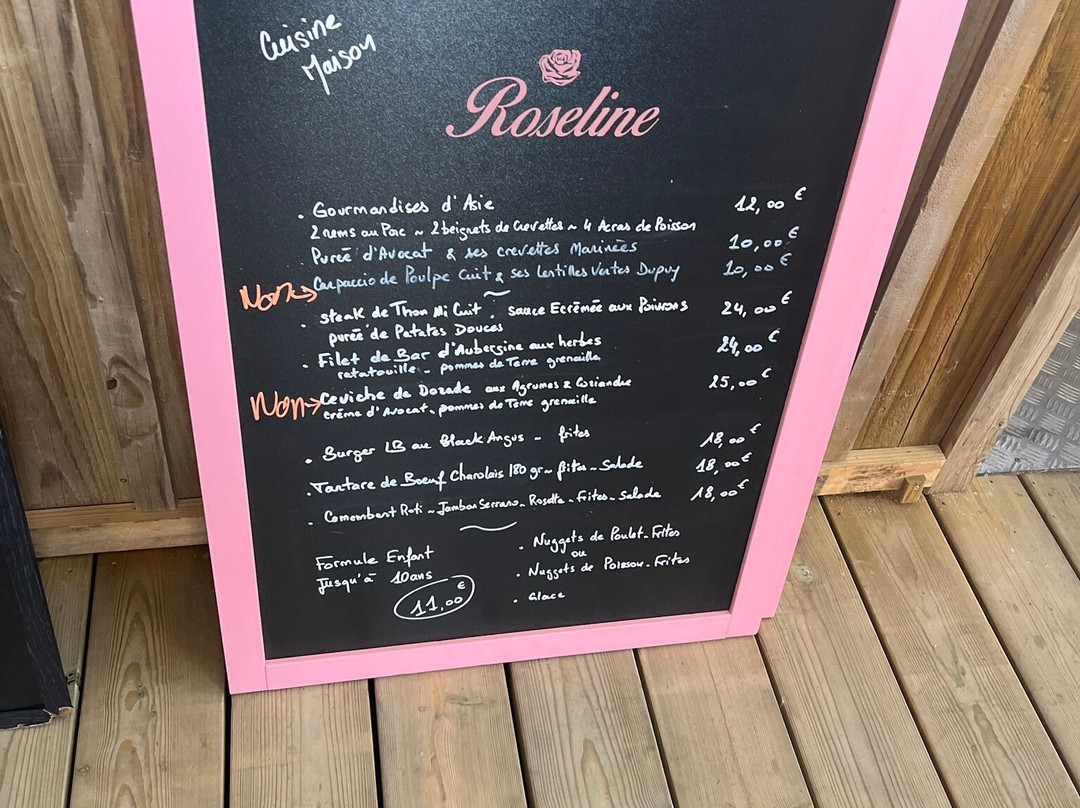 Cuisine
Maison
Roseline
. Gourmandises d'Asie 12,00 €
2 nems au Porc ~ 2 beignets de Crevettes ~ 4 Acras de Poisson
. Purée d'Avocat & ses crevettes Marinées 10,00 €
Non → Carpaccio de Poulpe Cuit & ses lentilles Vertes Dupuy 10,00 €
~
. steak de Thon Mi Cuit . sauce Ecrémée aux Poivrons 24,00 €
purée de Patates Douces
. Filet de Bar d'Aubergine aux herbes 24,00 €
ratatouille - pommes de Terre grenaille
Non → Ceviche de Dorade aux Agrumes & Coriandre 25,00 €
crème d'Avocat - pommes de Terre grenaille
. Burger LB au Black Angus - frites 18,00 €
. Tartare de Boeuf Charolais 180 gr ~ frites ~ Salade 18,00 €
. Camembert Roti ~ Jambon Serrano - Rosette - Frites - Salade 18,00 €
~
Formule Enfant
Jusqu'à 10 ans
11,00 €
. Nuggets de Poulet - Frites
ou
. Nuggets de Poisson - Frites
. Glace